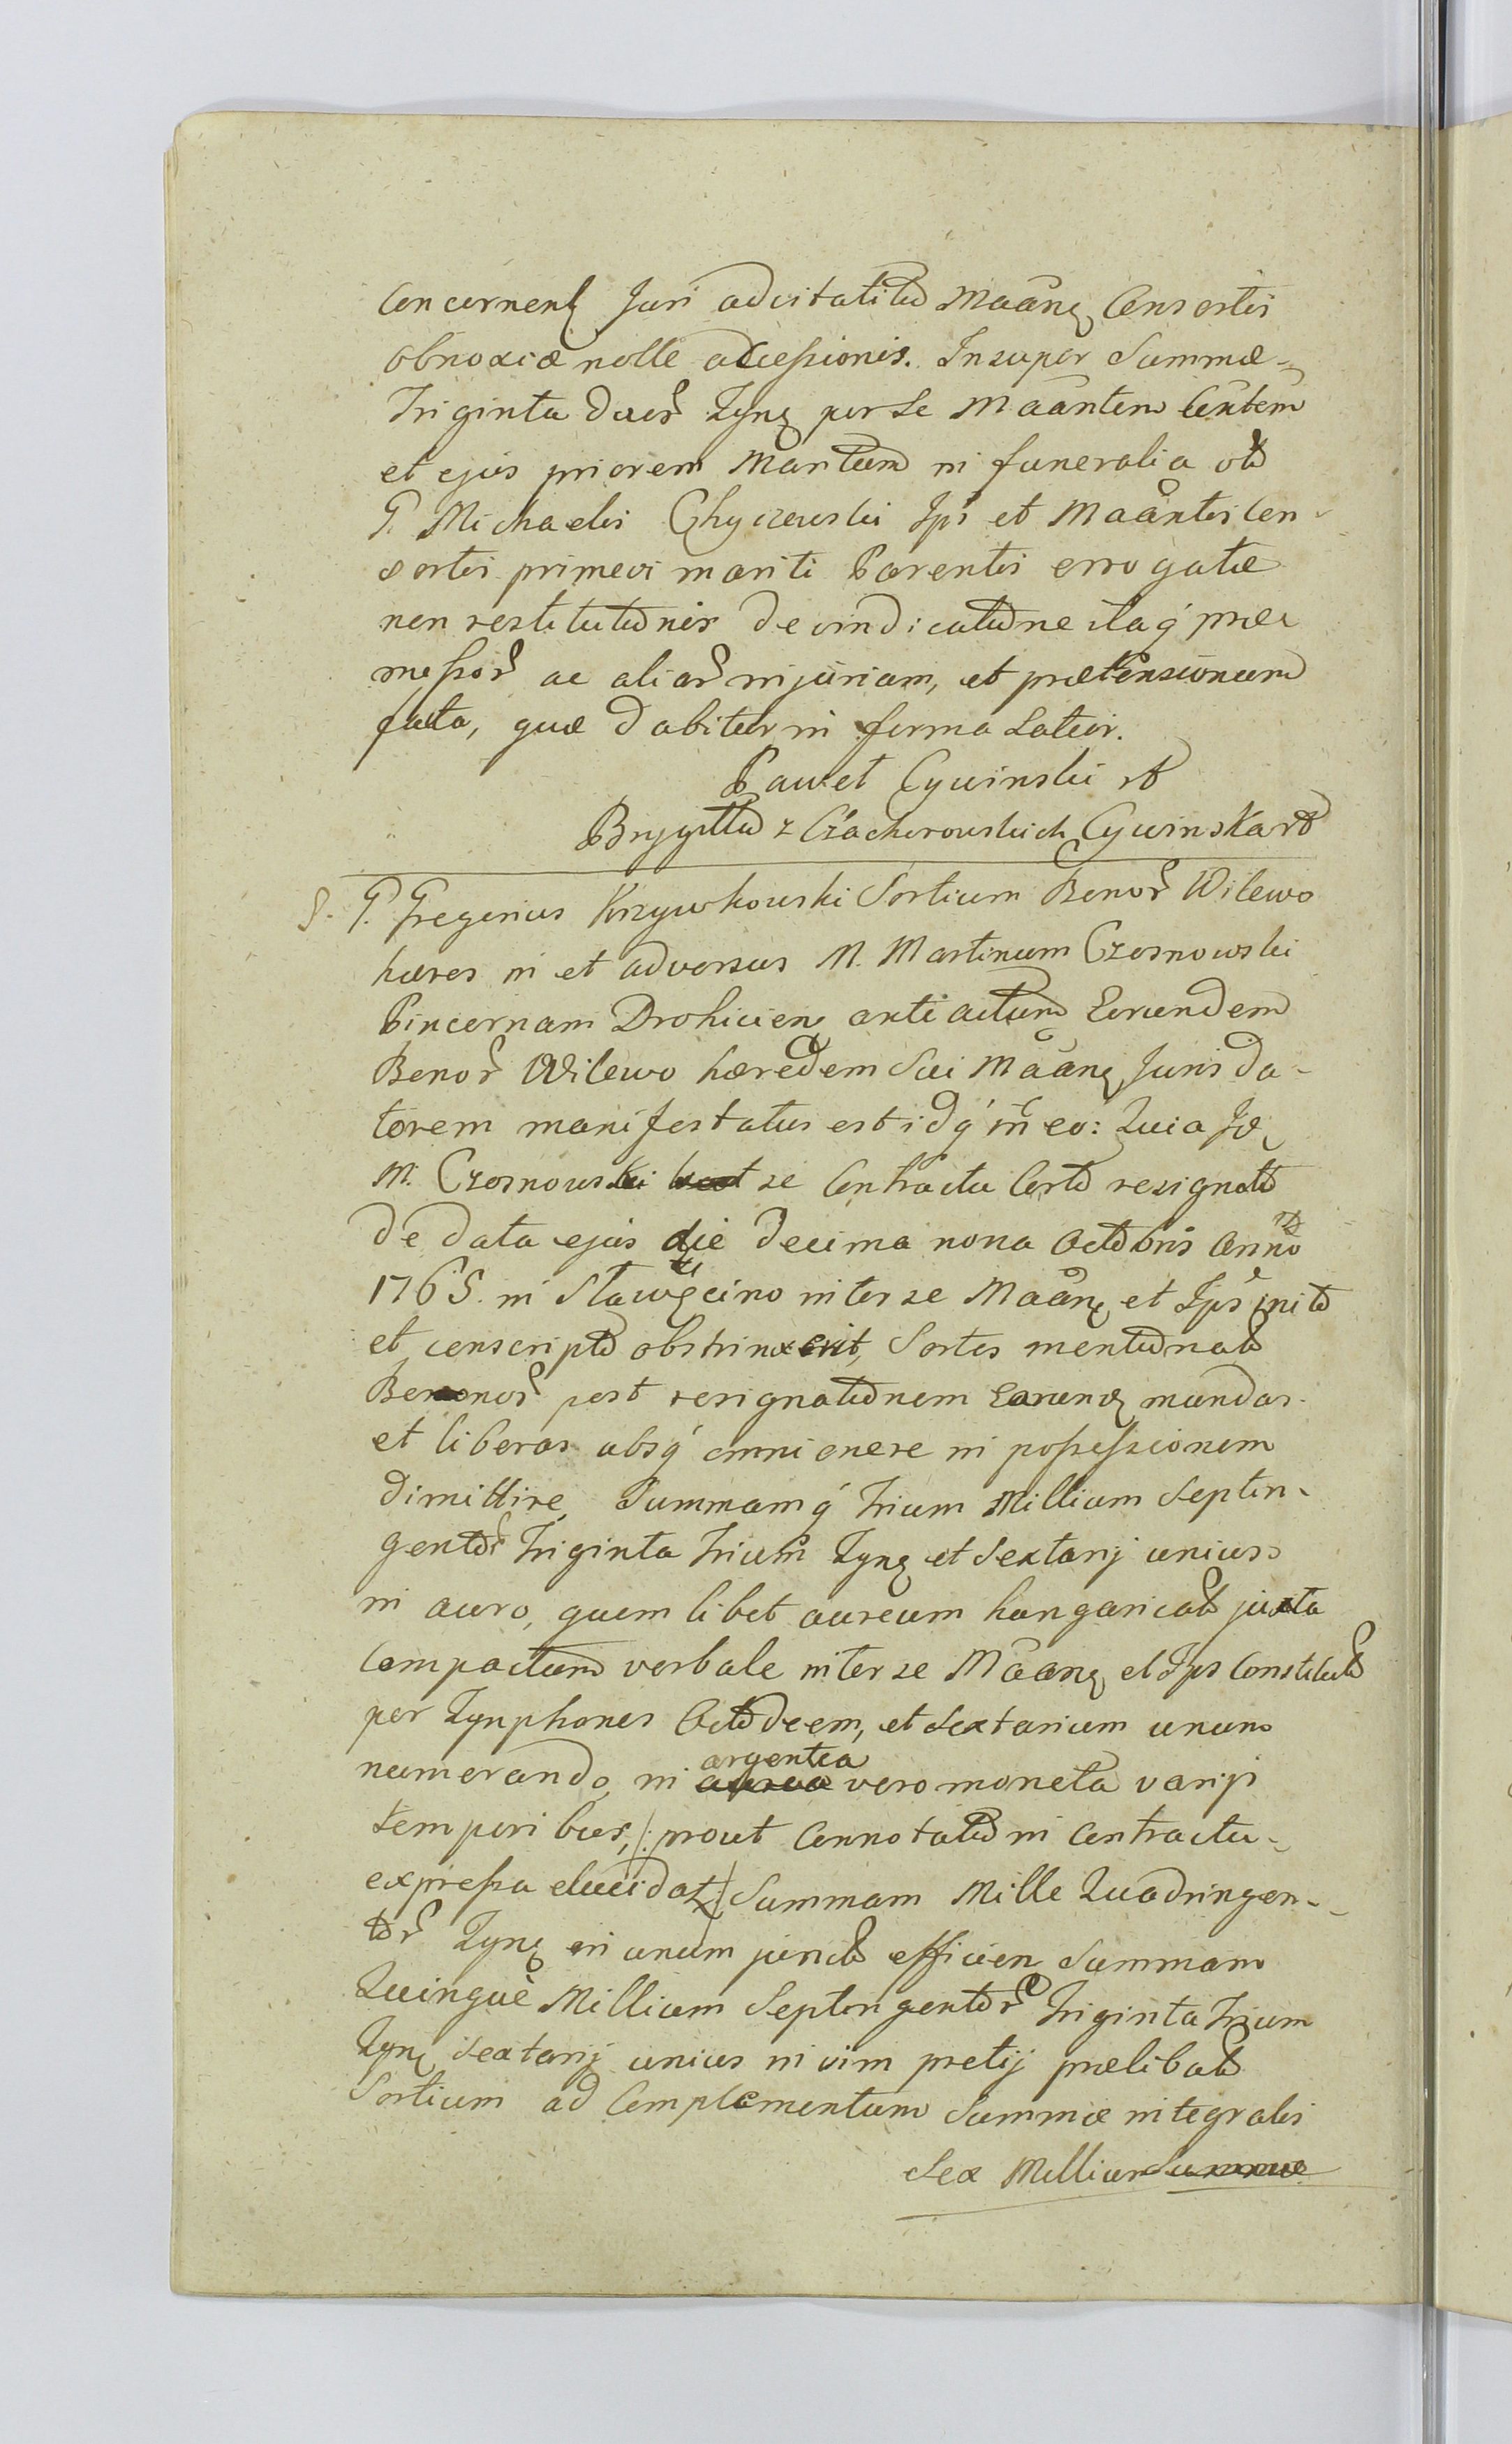 Concernen Juri advitalitio Maãn Consortis
obnoxiæ nolle accessionis. Insuper Summæ
Triginta duor Tyn per se Maãntem Contem
et ejus priorem Maritum in funeralia olĩ
G. Michaelis Chyczewski Ipŝ et Maãntis Con-
sortis primevi mariti Parentis errogatæ
non restitutionis de vindicatione itaq præ
missor ac aliar injuriam, et prætensionum
facta, quæ dabitur in forma Latior.
Paweł Cywinski
Brygitta z Czacherowskich Cywinska
S. G. Gregorius Krzywkowski Sortium Bonor Wilewo
hæres in et adversus M. Martinum Czosnowski
Pincernam Drohicien anti actum Eorundem
Bonor Wilewo hæredem Sui Maãn Juris da-
torem manifestatus est idq in eo: Quia
M. Czosnowski se Contractu Certo resignato
de data ejus die decima nona Octobris Anno
1765. in Sławęcino inter se Maãn et Ipŝ inito
et conscripto obstrinxerit, Sortes mentionat
Bonor post resignationem Earund mundas
et liberas absq omni onere in possessionem
dimittire, Summamq trium Millium Septin-
gentor Triginta trium Tyn et Sextarij unius
in auro, quem libet aureum hungaricat juxta
Compactum verbale inter se Maãn et Ipŝ Constitut
per Tynphones Octodeem, et Sextarium unum
numerando, in aurea argentea vero moneta varijs
temporibus, /: prout Connotatio in Contractu
expressa elucidat :/ Summam Mille Quadringen-
tor Tyn in unum junct efficien Summam
Quinque Millium Septingentor Triginta trium
Tyn Sextarij unius in vim pretij prælibat
Sortium ad Complementum Summæ integralis
Sex Millium Summæ